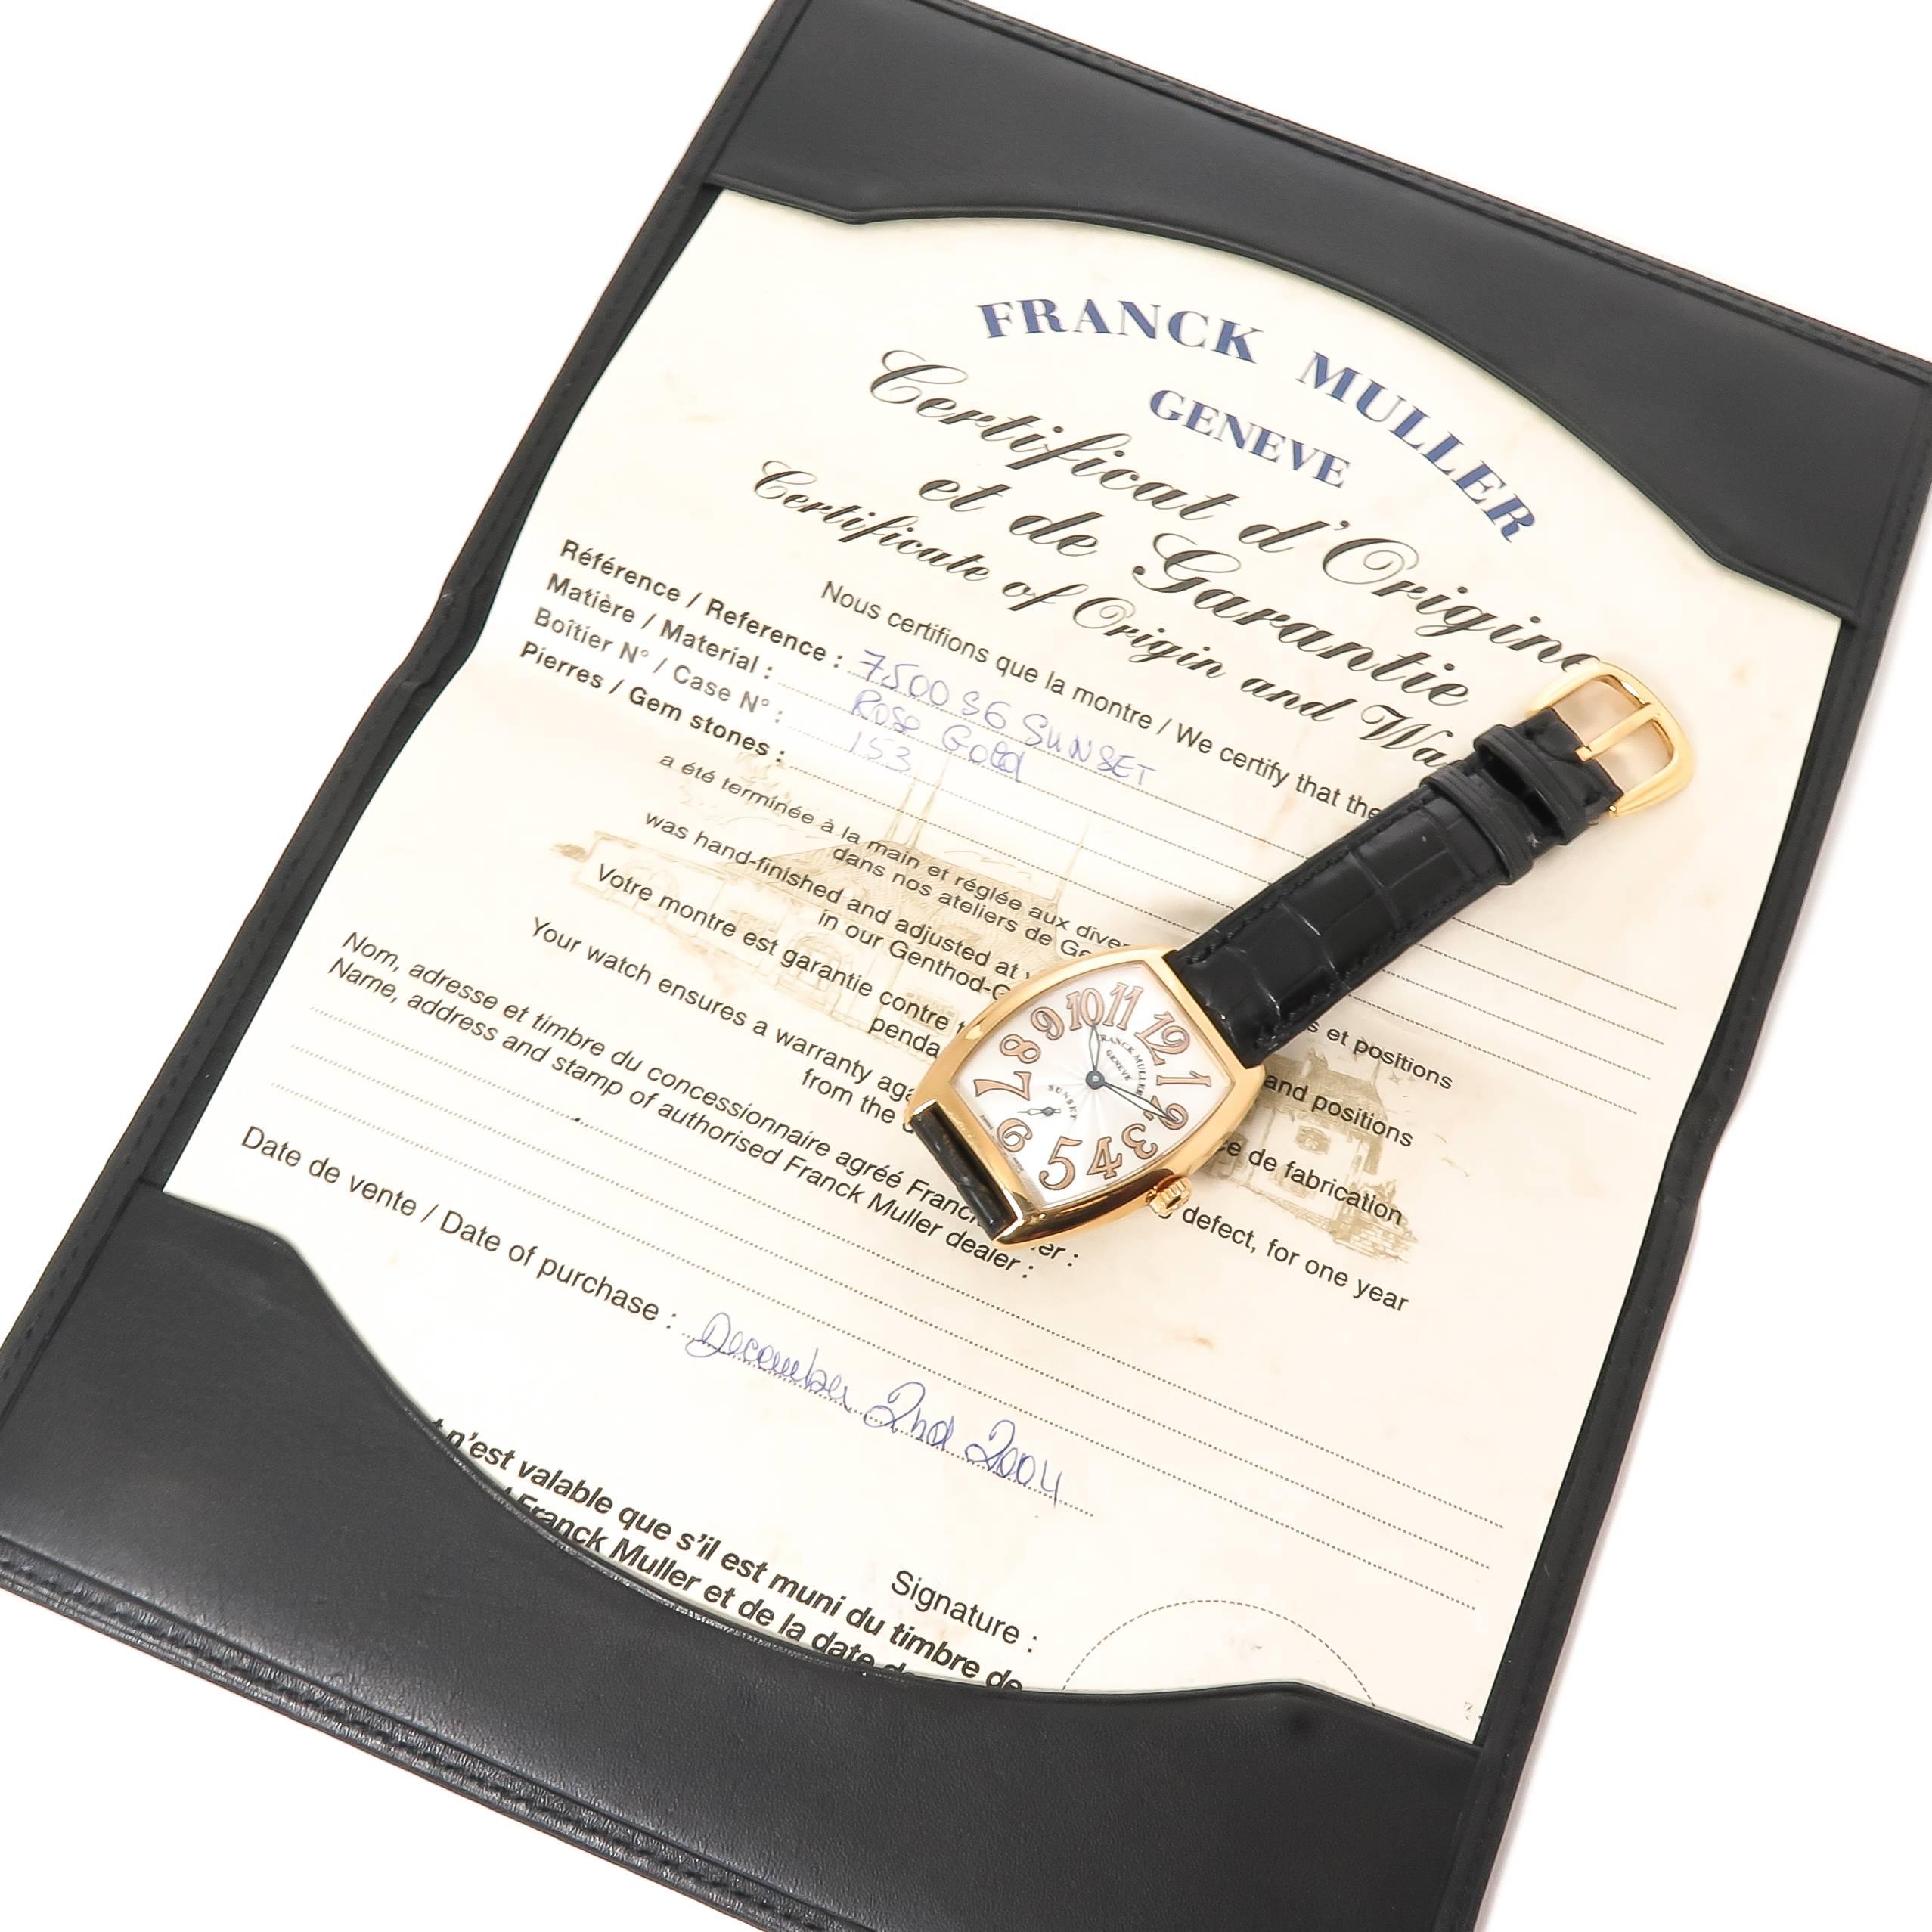 FRANCK MULLER
GENEVE
Certificat d'Origine
et de Garantie
Certificate of Origin and Wa
Nous certifions que la montre / We certify that the
Référence / Reference : 7500 S6 SUNSET
Matière / Material : Rose Gold
Boîtier N° / Case N° : 153
Pierres / Gem stones :
a été terminée à la main et réglée aux diver s et positions
dans nos ateliers de Ge
was hand-finished and adjusted at v and positions
in our Genthod-G
Votre montre est garantie contre t ce de fabrication
penda
Your watch ensures a warranty aga g defect, for one year
from the
Nom, adresse et timbre du concessionnaire agréé Franck er :
Name, address and stamp of authorised Franck Muller dealer :
Date de vente / Date of purchase : December 2nd 2004
Signature :
n'est valable que s'il est muni du timbre de
Franck Muller et de la date de
FRANCK MULLER
GENEVE
SUNSET
10 11 12 1 2 3 4 5 6 7 8 9